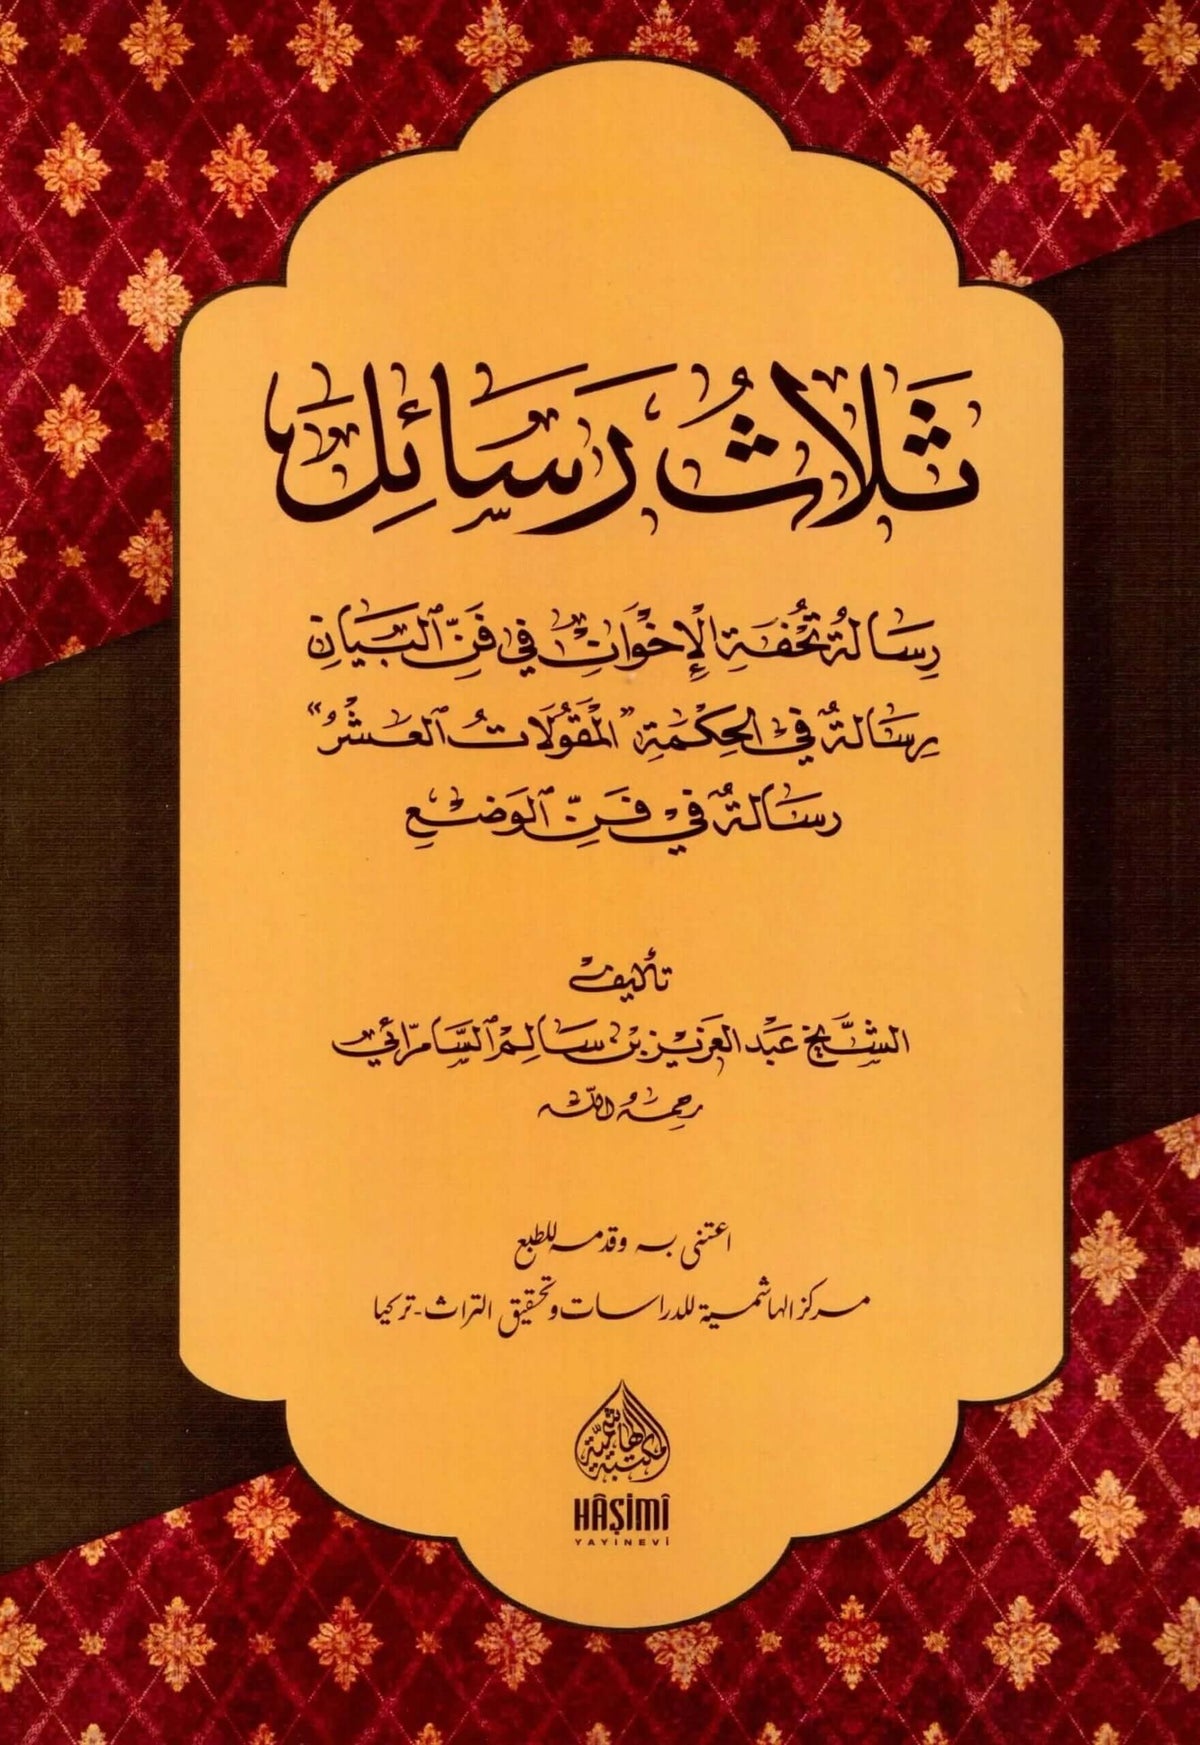 ثَلَاثُ رَسَائِلَ
رِسَالَةُ تُحْفَةِ الْإِخْوَانِ فِي فَنِّ ٱلْبَيَانِ
رِسَالَةٌ فِي الْحِكْمَةِ "الْمَقُولَاتُ ٱلْعَشْرُ"
رِسَالَةٌ فِي فَنِّ ٱلْوَضْعِ
تأليف
الشَّيخ عَبْد العَزيز بن سَالِم ٱلسَّامرَّائي
رحمه الله
اعتنى به وقدمه للطبع
مركز الهاشمية للدراسات وتحقيق التراث - تركيا
المكتبة الهاشمية
HÂŞİMÎ
YAYINEVİ